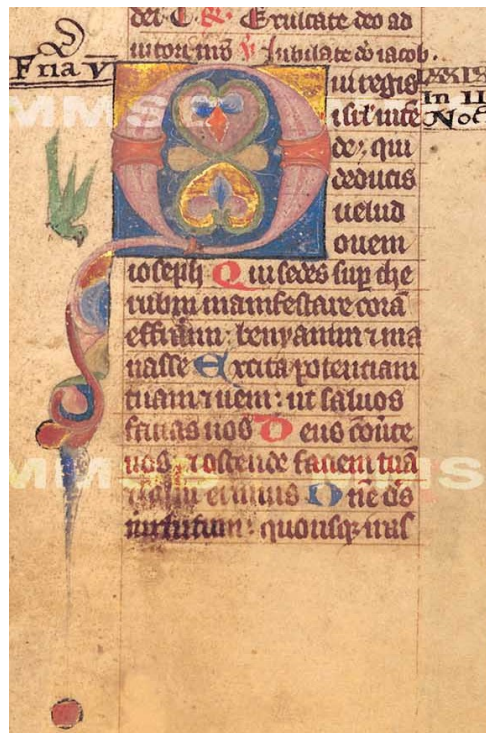 dei C. R. Exultate deo ad
iutori nrō V Iubilate dō iacob.
Fria V
Qui regis
isrl' inte
de: qui
deducis
uelud
ouem
In II
Noc
ioseph Qui sedes sup che
rubyn manifestare corā
effraym: benyamin ⁊ ma
nasse Excita potenciam
tuam ⁊ ueni: ut saluos
facias nos Deus cōuīte
nos ⁊ ostende faciem tuā
et salui erimus Dn̄e ds
uirtutum: quousq;
MMS
MMS